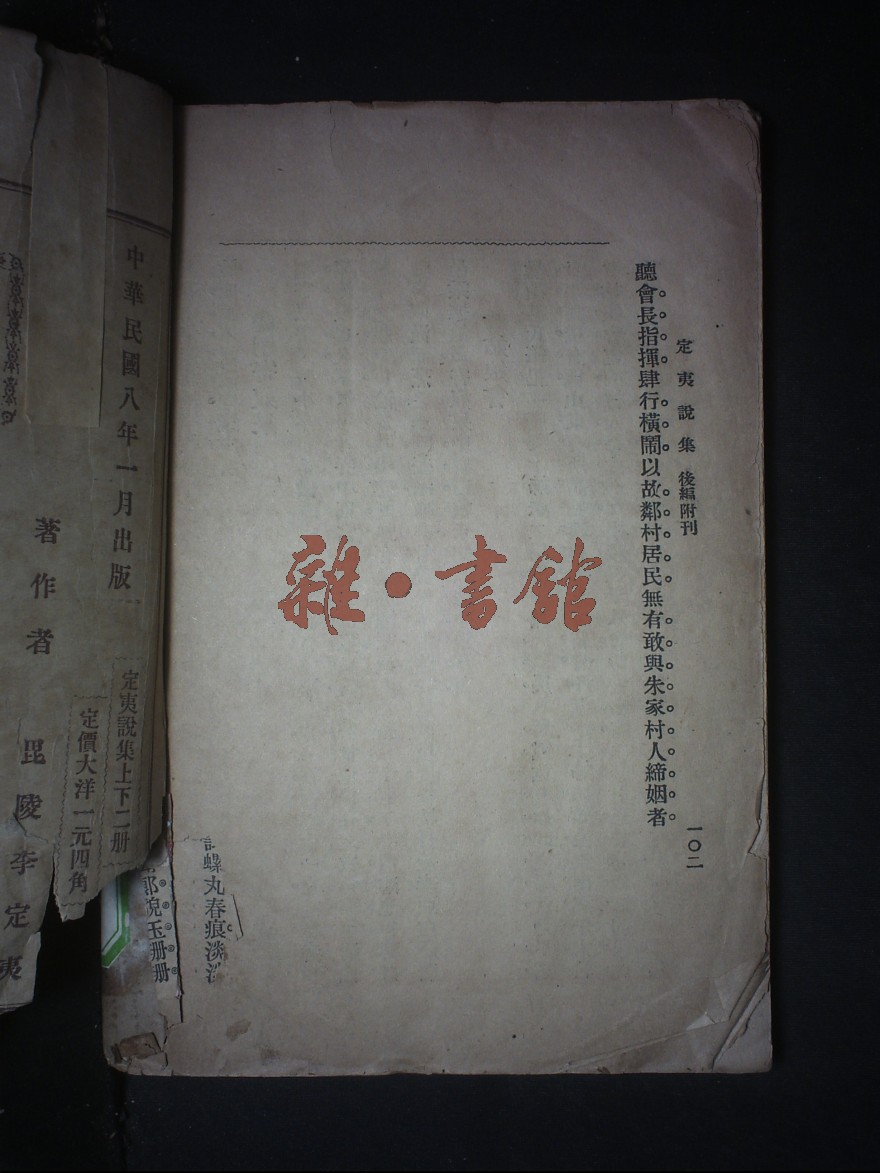 定夷說集 後編附刊
一〇二
聽會長指揮肆行橫鬧以故鄰村居民無有敢與朱家村人締姻者
雜•書館
螺丸春痕淡
貌玉珊珊
中華民國八年一月出版
定夷說集上下二册
定價大洋一元四角
著作者 毘陵李定夷